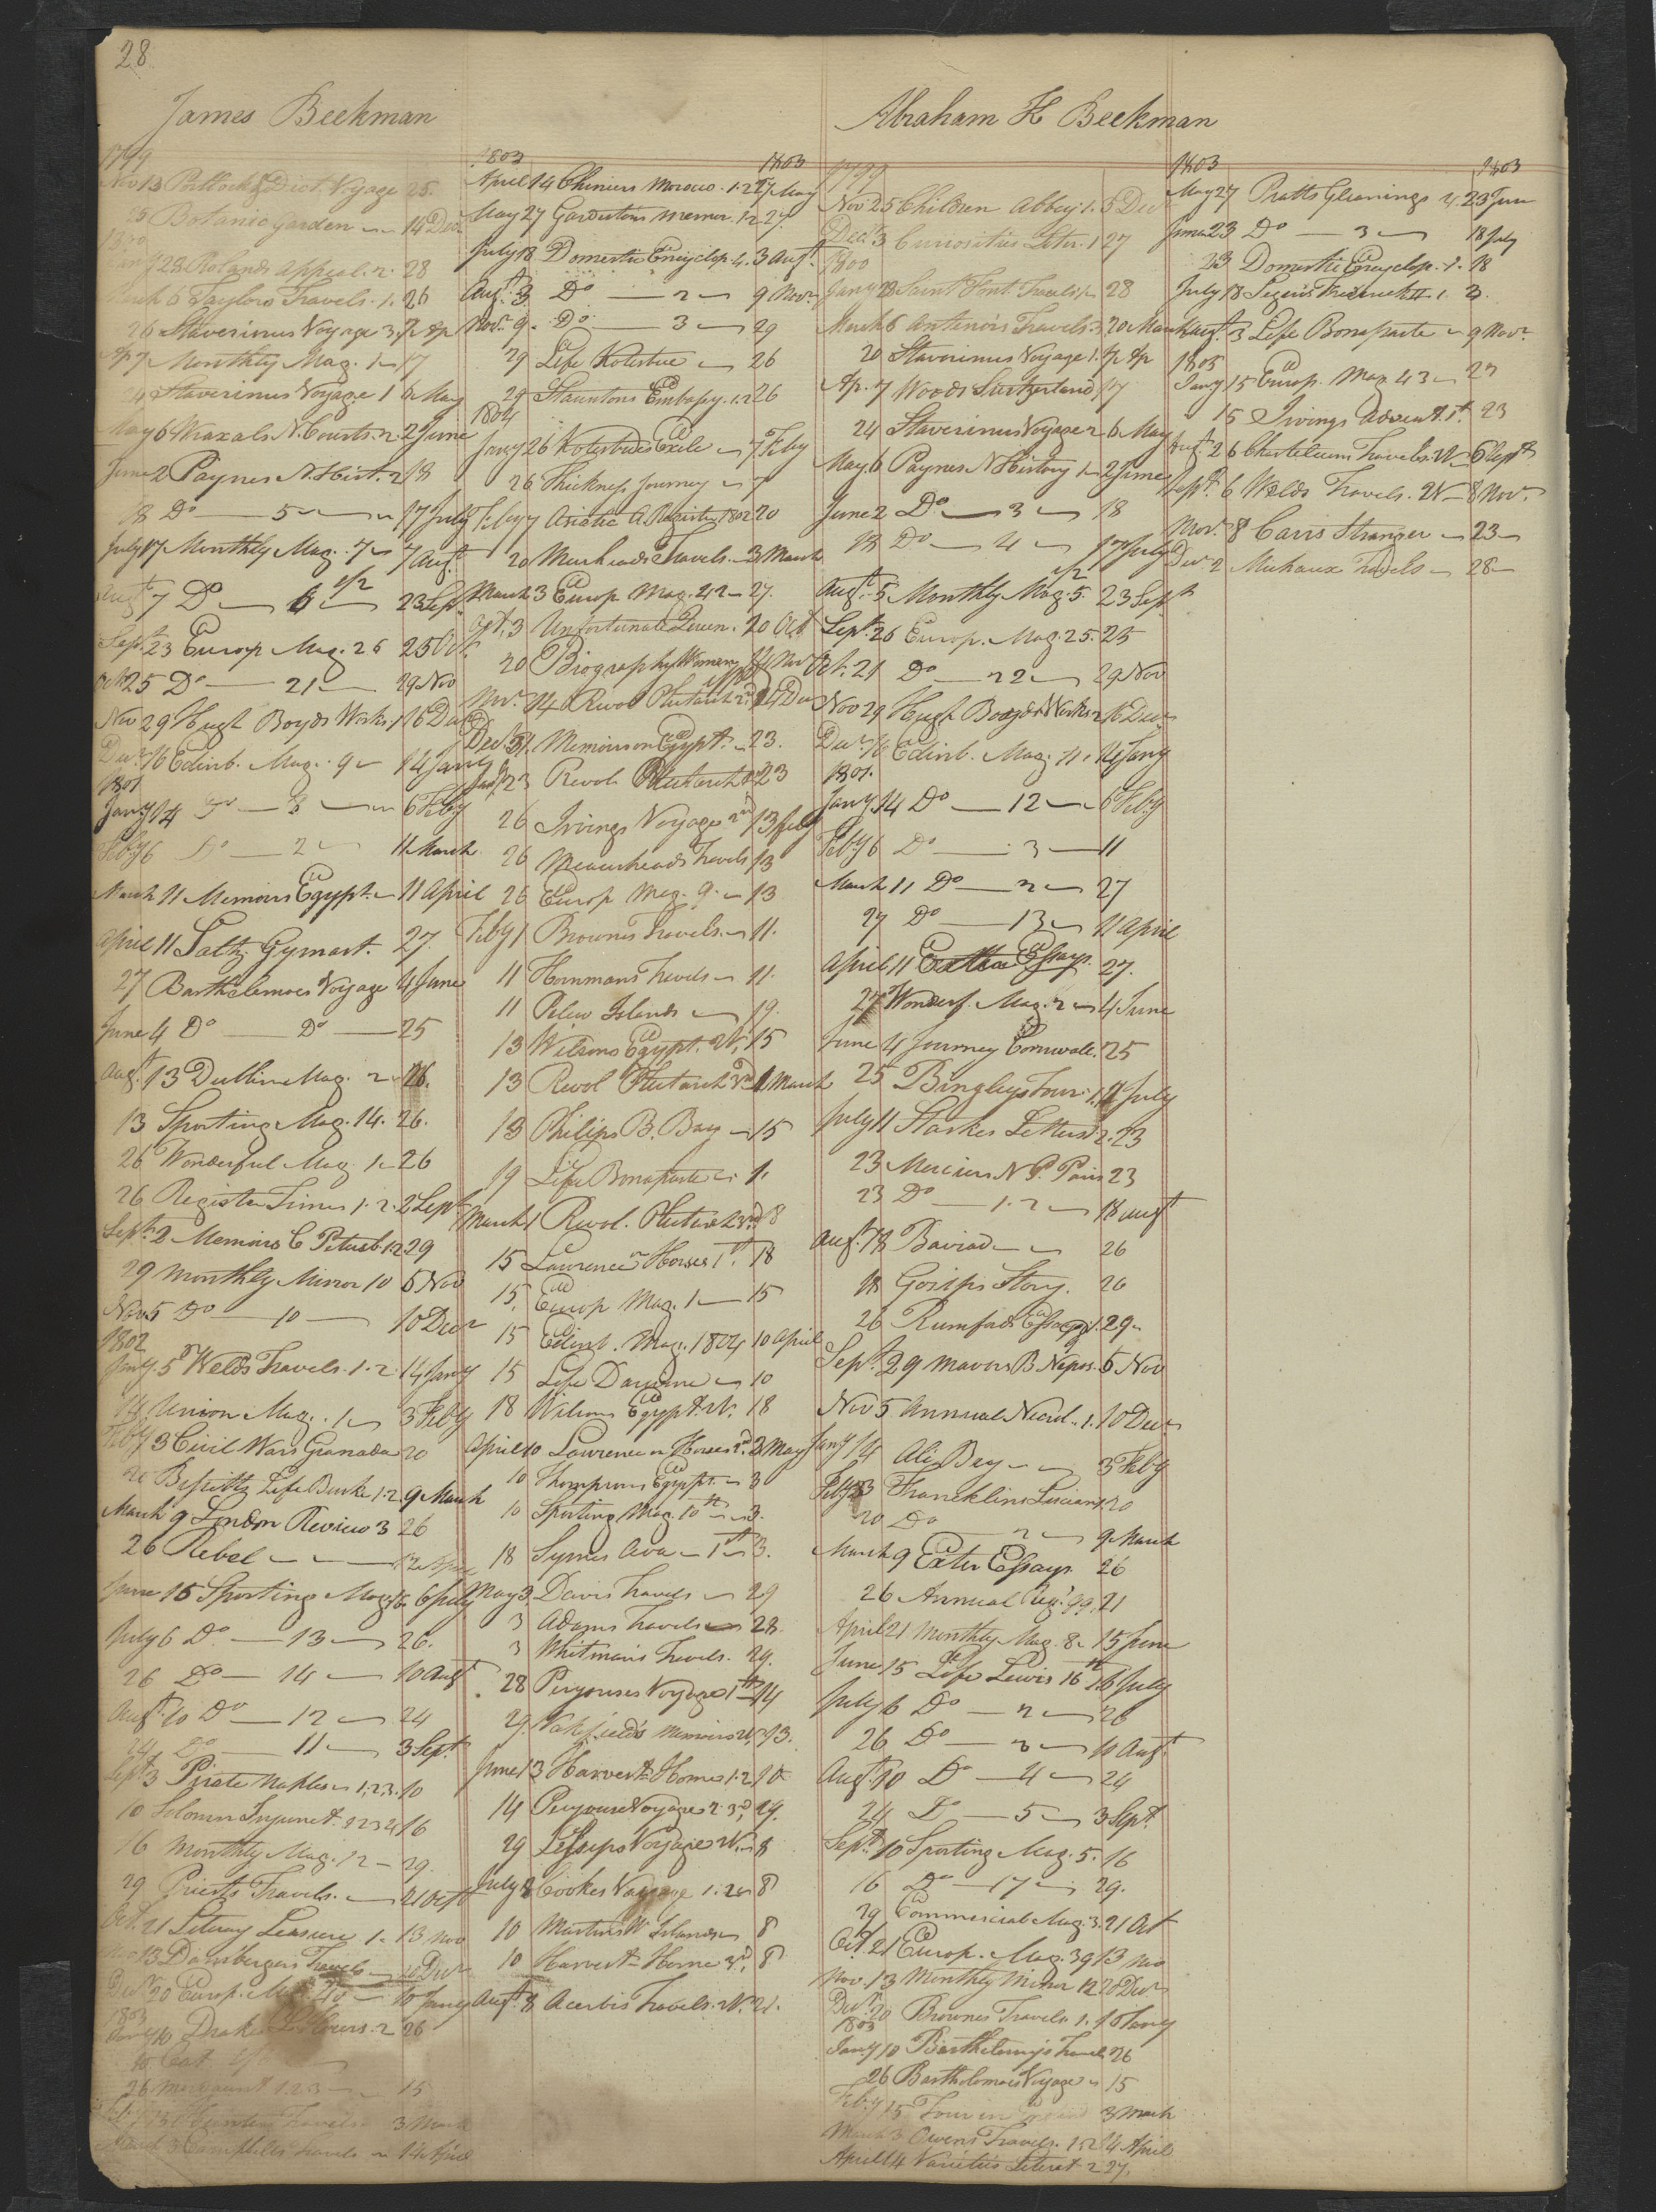 28
James Beekman
1799
Nov 13 Portlock & Dixt. Voyage 25
25 Botanic Garden 14 Decr
1800
Jany 28 Rolands Appeal. 2. 28
March 6 Taylors Travels. 1. 26
26 Staverinus Voyage 3. 7 Ap
Ap 7 Monthly Mag. 1 17
24 Staverinus Voyage 1 6 May
May 6 Wraxals N. Courts. 2. 2 June
June 2 Paynes N. Hist. 2 18
18 Do 5 17 July
July 17 Monthly Mag. 7 7 Augt
Augt 7 Do 6 1/2 23 Sept
Sept 23 Europ Mag. 26 25 Oct.
Oct 25 Do 21 29 Nov
Nov 29 Hugh Boyds Works. 1 16 Decr
Decr 16 Edinb. Mag. 9 14 Jany
1801
Jany 14 Do 8 6 Feby
Feby 6 Do 2 11 March
March 11 Memoirs Egypt. 11 April
April 11 Saltz. Gymnast. 27.
27 Barthelemoes Voyage 4 June
June 4 Do Do 25
Augt 13 Dublin Mag. 2 26.
13 Sporting Mag. 14. 26.
26 Wonderful Mag. 1. 26
26 Register Times 1. 2. 2 Sept
Sept. 2 Memoirs C Petersb. 1.2 29
29 Monthly Mirror 10 5 Nov
Nov. 5 Do 10 10 Decr
1802
Jany. 5 Welds Travels. 1. 2. 14 Jany
14 Union Mag. 1 3 Feby
Feby 3 Civil Wars Granada 20
20 Bissetts Life Burke 1.2. 9 March
March 9 London Review 3 26
26 Rebel 12 Apl
June 15 Sporting Mag. 15 6 July
July 6 Do 13 26.
26 Do 14 10 Augt
Augt 10 Do 12 24
24 Do 11 3 Sept.
Sept 3 Pirate Naples 1.2.3. 10
10 Solemn Injunct. 1 2 3 4 16
16 Monthly Mag. 12 29.
29 Priests Travels. 21 Oct
Oct. 21 Literary Leasure. 1. 13 Nov
Nov 13 Damberger Travels 20 Decr
Decr 20 Europ. Mag. 40 10 Jany
1803
Jany 10 Drakes L. Hours. 2 26
10 Cont.
26 Mordaunt 1 2 3 15
Feby 15 Hunters Travels 3 March
March 3 Campbells Travels 14 April
1803 1803
April 14 Cheniers Morocco. 1.2 27 May
May 27 Gardentons Memoir. 1.2 27.
July 18 Domestic Encyclop. 4. 3 Augt.
Augt. 3 Do 2 9 Novr
Novr. 9. Do 3 29
29 Life Kotzebue 26
29 Stauntons Embassy. 1.2 26
1804
Jany 26 Kotzebues Exile 7 Feby
26 Thickness Journey 7
Feby 7 Asiatic A. Register 1802 20
20 Muirheads Travels. 3 March
March 3 Europ Mag. 42 27.
Sept. 3 Unfortunate Queen. 20 Oct
20 Biography Women 14 Novr
Novr. 14 Revol Plutarch 2. 17 Decr
Decr 31. Memoirs on Egypt. 23.
Jany 23 Revol. Plutarch 23
26 Irvings Voyage 2nd 13 Feby
26 Meuirheads Travels 13
26 Europ Mag. 9. 13
Feby 1 Brownes Travels. 11.
11 Hornmans Travels 11.
11 Pelew Islands 19.
13 Wilsons Egypt. 2V. 15
13 Revol Plutarch 3d 1 March
13 Philips B. Bay 15
19 Life Bonaparte 1.
March 1 Revol. Plutarch 3rd 18
15 Lawrence on Horses 1st. 18
15. Europ Mag. 1 15
15 Edinb. Mag. 1804 10 April
15 Life Darwin 10
18 Wilsons Egypt. 2V. 18
April 10 Lawrence on Horses 2d. 3 May
10 Thompsons Egypt. 3
10 Sporting Mag. 10th 3.
18 Symes Ava 1st 3.
May 3 Davis Travels 29
3 Adams Travels 28.
3 Whitmans Travels. 29.
28 Peryouses Voyage 1st 14
29. Wakefields Memoirs 2V. 13.
June 13 Harvest Home 1.2 10
14 Peryouse Voyages 2. 3d, 29.
29 Lesseps Voyages 2V. 8
July 8 Cookes Voyage 1. 2d 8
10 Martins W Islands 8
10 Harvest Home 3d, 8
Augt. 8 Acerbis Travels. 2V. 21.
Abraham K Beekman
1799
Nov 25 Children Abbey 1. 5 Decr
Decr 3 Curiosities Liter. 1 27
1800
Jany 28 Saint Font. Travels 28
March 6 Antenors Travels. 3 20 March
20 Staverinus Voyage 1. 7 Ap
Ap. 7 Woods Switzerland 17
24 Staverinus Voyage 2 6 May
May 6 Paynes N History 1 2 June
June 2 Do 3 18
18 Do 4 17 July
Augt. 5 Monthly Mag. 5. 1/2 23 Sept
Sept. 26 Europ. Mag. 25. 25
Oct. 21 Do 22 29 Nov
Nov 29 Hugh Boyds Works 2 16 Decr
Decr 16 Edinb. Mag. 11. 14 Jany
1801.
Jany 14 Do 12 6 Feby
Feby 6 Do 3 11
March 11 Do 2 27
27 Do 13 11 April
April 11 Exeter Essays. 27.
27 Wonderf. Mag. 2 4 June
June 4 Journey Cornwall. 25
25 Bingleys Tour. 1. 11 July
July 11 Starkes Letters 2. 23
23 Merciers N P. Paris 23
23 Do 1. 2 18 Augt
Augt. 18 Baviad 26
18 Gosips Story. 26
26 Rumfords Essays 1. 29
Sept. 29 Mavors B. Nepos. 5 Nov
Nov 5 Annual Necrol. 1. 10 Decr
Jany 14 Ali Bey 3 Feby
Feby 3 Francklins Lucian 1 20
20 Do 2 9 March
March 9 Exeter Essays 26
26 Annual Regr. 99. 21
April 21 Monthly Mag. 8 15 June
June 15 Life Lewis 16th 6 July
July 6 Do 2 26
26 Do 3 10 Augt.
Augt. 10 Do 4 24
24 Do 5 3 Sept.
Sept. 10 Sporting Mag. 5. 16
16 Do 17 29.
29 Commercial Mag. 3. 21 Oct
Oct 21 Europ. Mag. 39 13 Nov
Nov. 13 Monthly Mirror 12 20 Decr
Decr. 20 Brownes Travels 1. 10 Jany
1803
Jany 10 Barthelemys Travels 26
26 Bartholomaes Voyage 15
Feby 15 Tour in 3 March
March 3 Owens Travels. 1.2 14 April
April 14 Varieties Literat. 2 27.
1803 1803
May 27 Pratts Gleanings 4. 23 June
June 23 Do 3 18 July
23 Domestic Encyclop. 1. 18
July 18 Segurs Frederick II 1. 3.
Augt. 3 Life Bonaparte 9 Novr
1805
Jany 15 Europ. Mag 43 23
15 Irvings Advent. 1st. 23
Augt. 26 Chastelleux Travels. 2V 6 Septr
Septr. 6 Welds Travels. 2V 8 Novr.
Novr. 8 Carrs Stranger 23
Decr 2 Michaux Travels 28